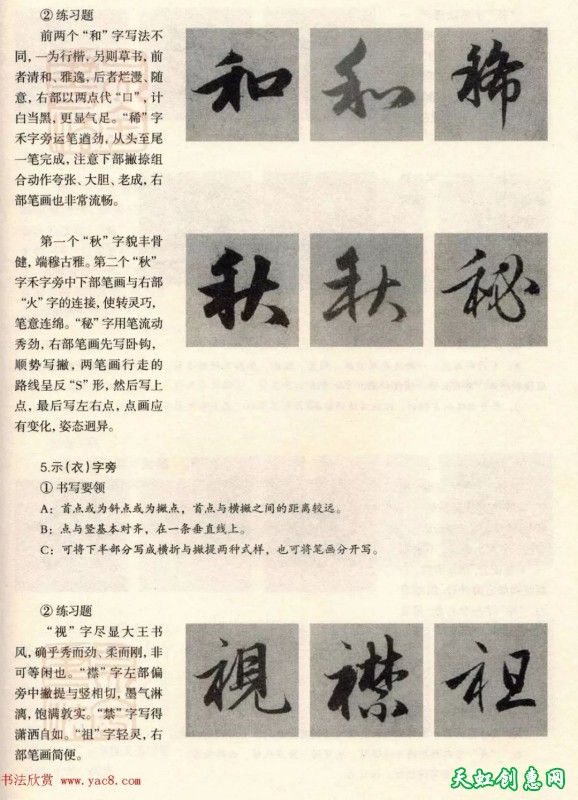 ② 练习题
前两个“和”字写法不
同，一为行楷，另则草书，前
者清和、雅逸，后者烂漫、随
意，右部以两点代“口”，计
白当黑，更显气足。“稀”字
禾字旁运笔遒劲，从头至尾
一笔完成，注意下部撇捺组
合动作夸张、大胆、老成，右
部笔画也非常流畅。
和 和 稀
第一个“秋”字貌丰骨
健，端穆古雅。第二个“秋”
字禾字旁中下部笔画与右部
“火”字的连接，使转灵巧，
笔意连绵。“秘”字用笔流动
秀劲，右部笔画先写卧钩，
顺势写撇，两笔画行走的
路线呈反“S”形，然后写上
点，最后写左右点，点画应
有变化，姿态迥异。
秋 秋 秘
5.示（衣）字旁
① 书写要领
A：首点或为斜点或为撇点，首点与横撇之间的距离较远。
B：点与竖基本对齐，在一条垂直线上。
C：可将下半部分写成横折与撇提两种式样，也可将笔画分开写。
② 练习题
“视”字尽显大王书
风，确乎秀而劲、柔而刚，非
可等闲也。“襟”字左部偏
旁中撇提与竖相切，墨气淋
漓，饱满敦实。“禁”字写得
潇洒自如。“祖”字轻灵，右
部笔画简便。
視 襟 祖
书法欣赏 www.yac8.com
天虹创惠网